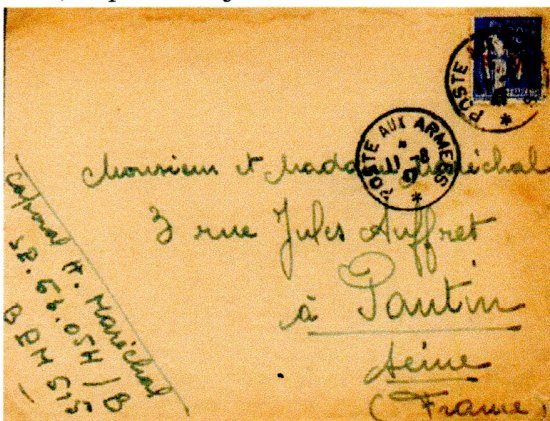 POSTE
POSTE AUX ARMEES
*
11 -8
47
*
Monsieur et Madame Maréchal
3 rue Jules Auffret
à Pantin
Seine
(France)
Caporal H. Maréchal
SP. 56.054 / B
BPM 515